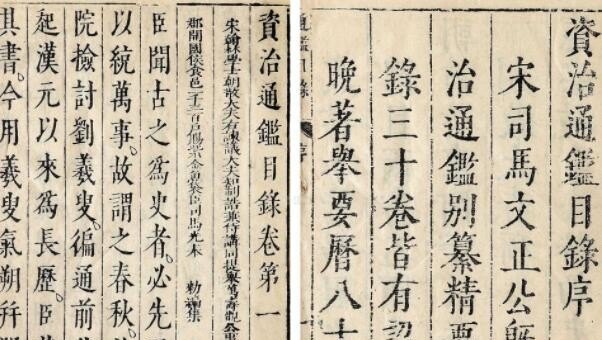 資治通鑑目錄序
宋司馬文正公旣
治通鑑別纂精要
錄三十卷皆有
晚著舉要曆八十
通鑑目錄 序
資治通鑑目錄卷第一
宋翰林學士朝散大夫右諫議大夫知制誥兼侍講同提舉萬壽觀公事
郡開國侯食邑一千三百戶賜紫金魚袋臣司馬光奉 勅編集
臣聞古之爲史者必先
以統萬事故謂之春秋
院檢討劉羲叟徧通前
起漢元以來爲長歷臣
其書今用羲叟氣朔幷